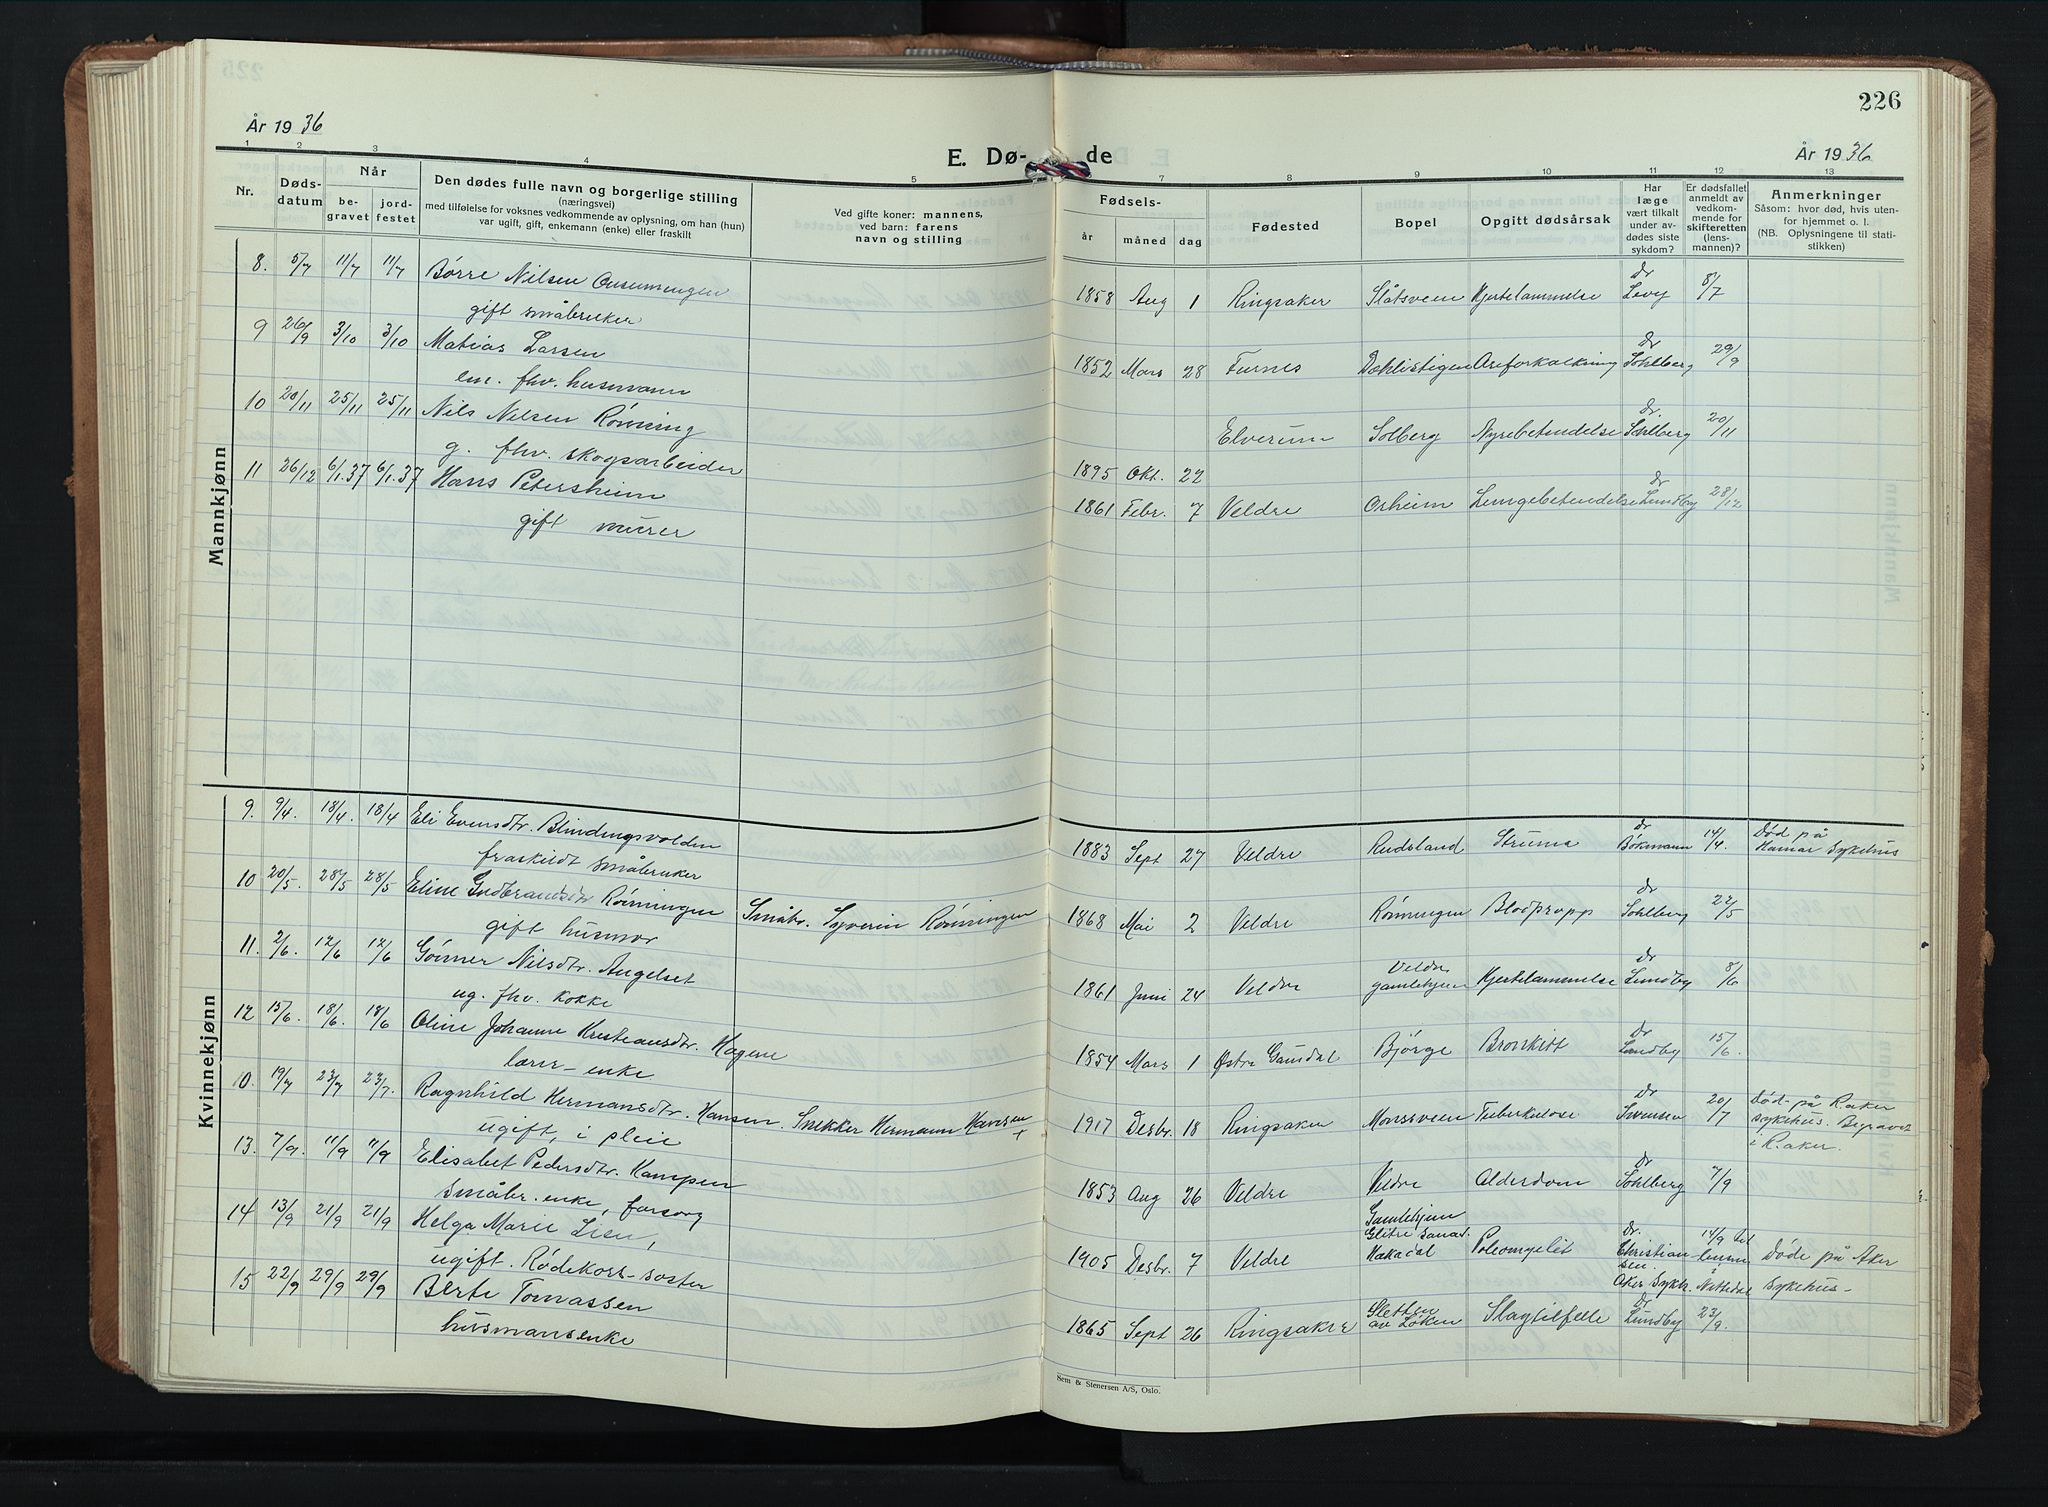 226
År 1936
E. Dø- de
År 1936
1 2 3 4 5 7 8 9 10 11 12 13
Nr.
Døds-
datum
Når
be-
gravet
jord-
festet
Den dødes fulle navn og borgerlige stilling
(næringsvei)
med tilføielse for voksnes vedkommende av oplysning, om han (hun)
var ugift, gift, enkemann (enke) eller fraskilt
Ved gifte koner: mannens,
ved barn: farens
navn og stilling
Fødsels-
år måned dag
Fødested
Bopel
Opgitt dødsårsak
Har
læge
vært tilkalt
under av-
dødes siste
sykdom?
Er dødsfallet
anmeldt av
vedkom-
mende for
skifteretten
(lens-
mannen)?
Anmerkninger
Såsom: hvor død, hvis uten-
for hjemmet o. l.
(NB. Oplysningene til stati-
stikken)
Mannkjønn
8. 5/7 11/7 11/7 Børre Nilsen
gift småbruker
1858 Aug 1 Ringsaker Slåtsveen Hjertelammelse dr Levy 8/7
9 26/9 3/10 3/10 Matias Larsen
em. fhv. husmann
1852 Mars 28 Furnes Dæhlistigen Areforkalkning dr Sohlberg 29/9
10 20/11 25/11 25/11 Nils Nilsen Rønning
g. fhv. skogsarbeider
1895 Okt. 22 Elverum Solberg Nyrebetendelse dr. Sohlberg 20/11
11 26/12 6/1.37 6/1.37 Hans Petersheim
gift murer
1861 Febr. 7 Veldre Arheim Lungebetendelse dr Lundby 28/12
Kvinnekjønn
9. 9/4. 18/4. 18/4 Eli Evensdtr. Blindingsvolden
fraskildt småbruker
1883 Sept 27 Veldre Rudsland Struma dr Bökmann 14/4. Død på
Hamar Sykehus
10 20/5. 28/5 28/5 Eline Gudbrandsdtr Rønningen Småbr. Syverin Rønningen
gift husmor
1868 Mai 2 Veldre Rønningen Blodpropp dr Sohlberg 22/5
11. 2/6. 12/6 12/6 Gørner Nilsdtr. Angelset
ug. fhv. kokke
1861 Juni 24 Veldre Veldre gamlehjem Hjertelammelse dr Lundby 8/6
12 15/6. 18/6. 18/6 Oline Johanne Kristiansdtr. Hagene
lærer-enke
1854 Mars 1 Østre Gausdal Bjørge Bronkitt dr Lundby 15/6.
10. 19/7 23/7 23/7. Ragnhild Hermansdtr. Hansen. Snekker Hermann Hansen +
ugift, i pleie
1917 Desbr. 18 Ringsaker Monssveen Tuberkulose dr Svensen 20/7 Død på R.aker
sykehus. Begravet
i R.aker.
13. 7/9. 11/9 11/9 Elisabet Pedersdtr. Kampen
småbr. enke, forsorg
1853 Aug 26 Veldre Veldre Gamlehjem Alderdom dr Sohlberg 7/9
14 13/9 21/9 21/9 Helga Marie Lien,
ugift. Rødekors-søster
1905 Desbr. 7 Veldre Glitre Sanat. Hakadal Poleomyelit dr. Christiansen. Aker Sykh. 14/9 til lensm. Nittedal Døde på Aker
Sykehus-
15 22/9 29/9 29/9 Berte Tomassen
husmansenke
1865 Sept 26 Ringsaker Sletten av Løken Slagtilfelle dr Lundby 23/9.
Sem & Stenersen A/S, Oslo.